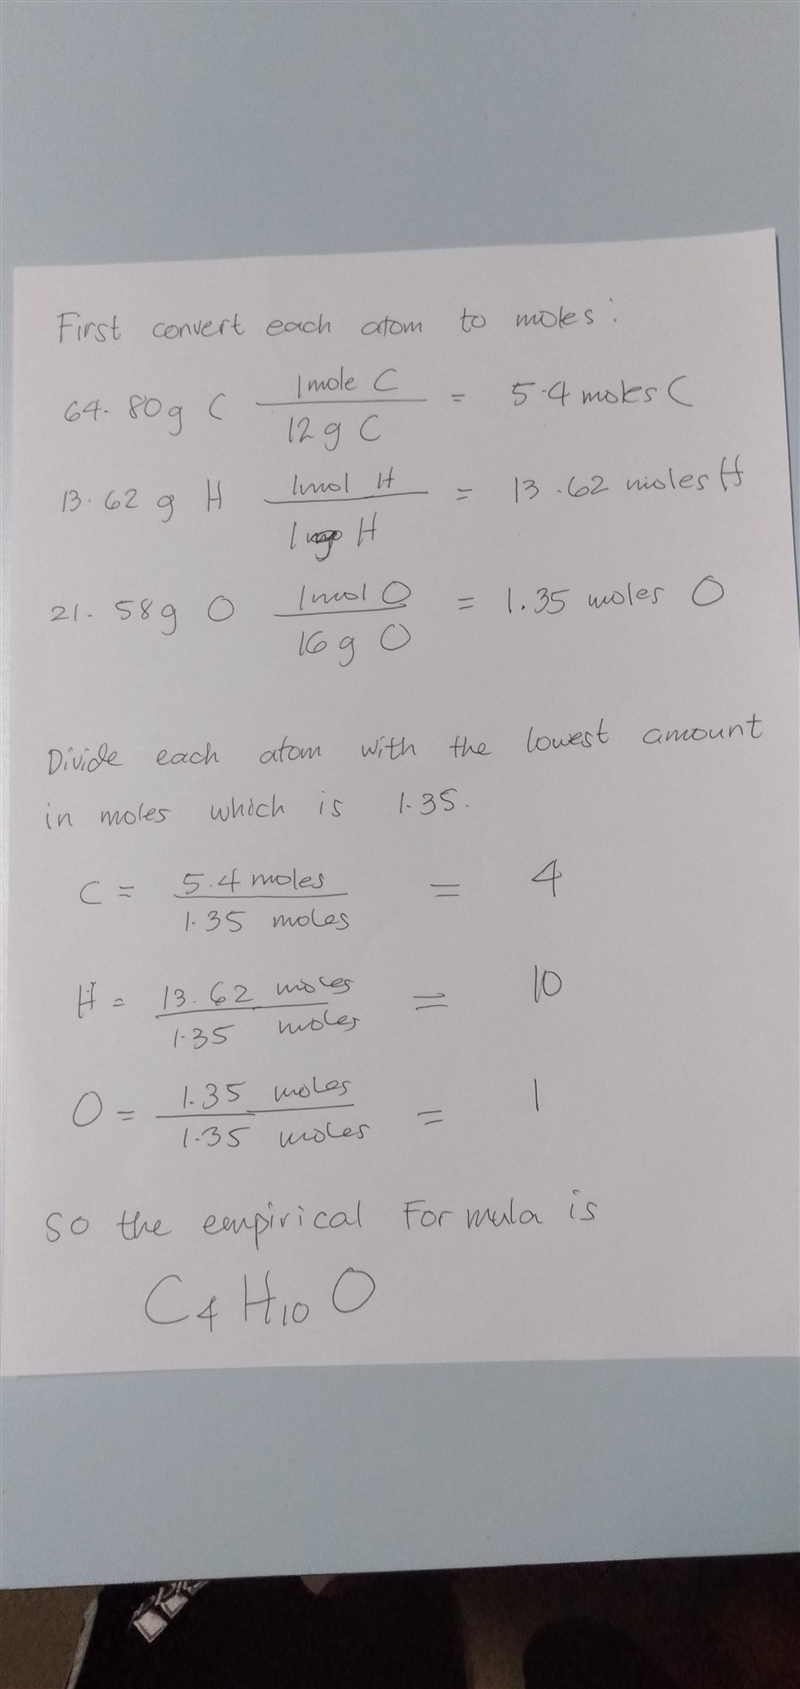 First convert each atom to moles:
64.80g C 1mole C / 12 g C = 5.4 moles C
13.62 g H 1mol H / 1 g H = 13.62 moles H
21.58g O 1mol O / 16 g O = 1.35 moles O
Divide each atom with the lowest amount
in moles which is 1.35.
C = 5.4 moles / 1.35 moles = 4
H = 13.62 moles / 1.35 moles = 10
O = 1.35 moles / 1.35 moles = 1
So the empirical Formula is
C4 H10 O